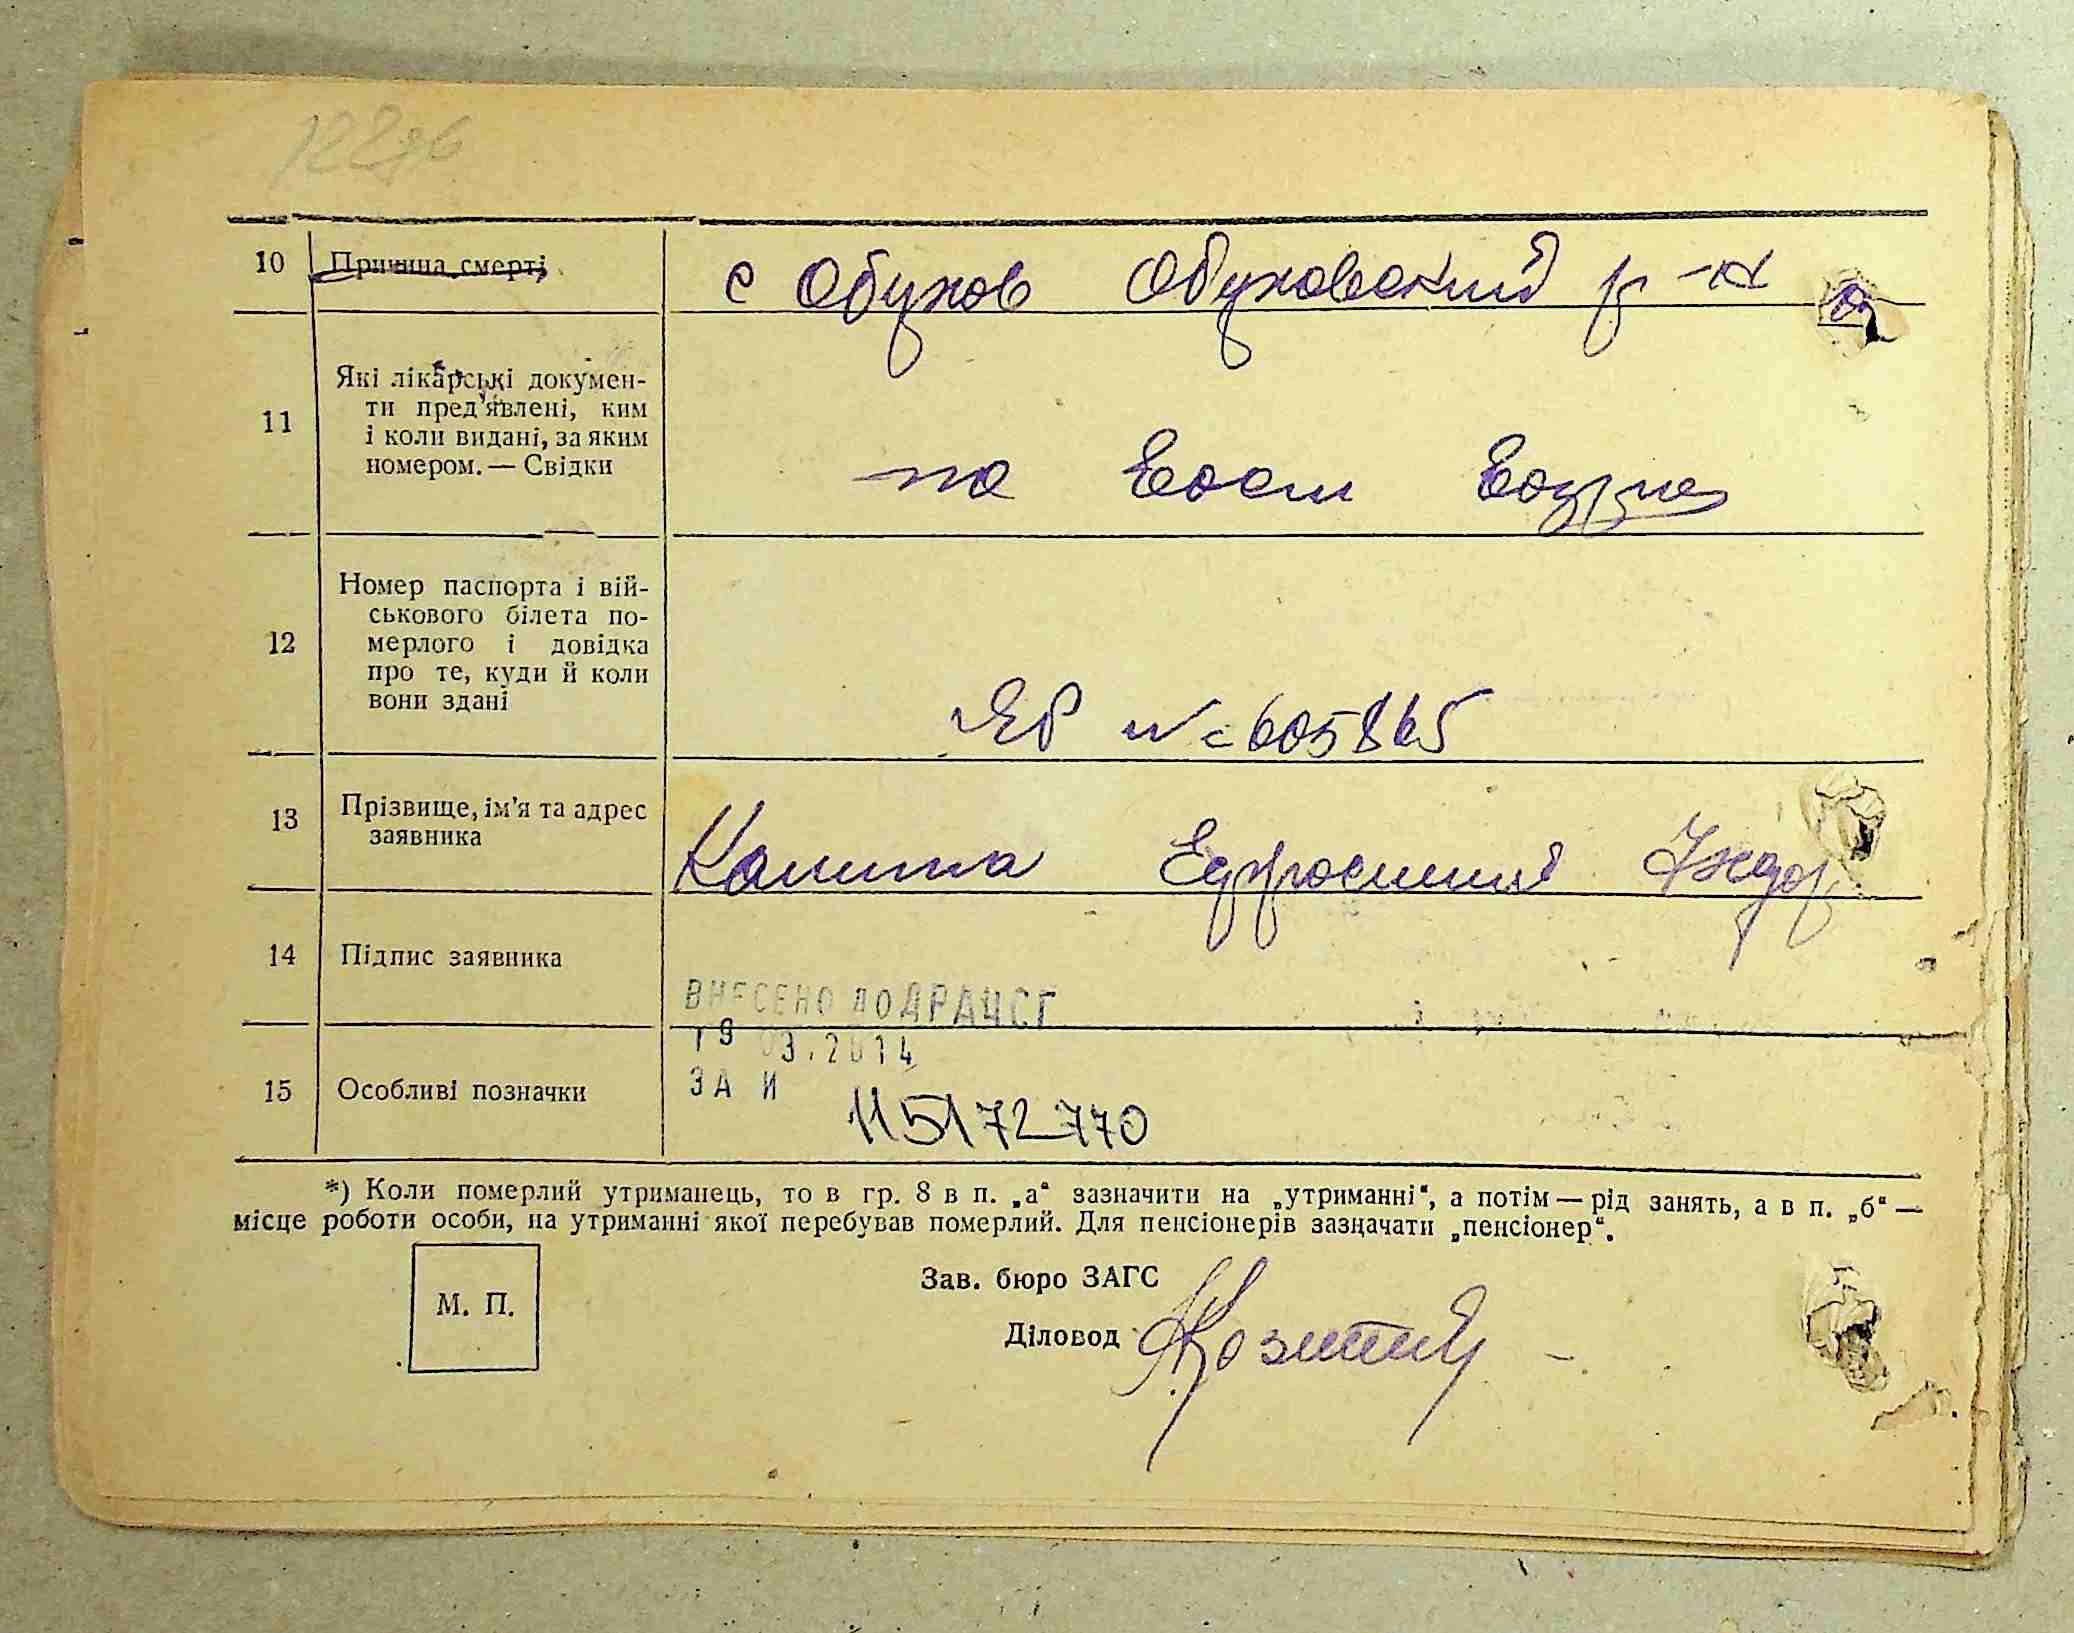 10 Причина смерті с Обухов Обуховский р-н
11 Які лікарські докумен-
ти пред'явлені, ким
і коли видані, за яким
номером. — Свідки
по
12 Номер паспорта і вій-
ськового білета по-
мерлого і довідка
про те, куди й коли
вони здані
ЯР № 605865
13 Прізвище, ім'я та адрес
заявника
Калита Ефросиний
14 Підпис заявника
ВНЕСЕНО ДО ДРАЦСГ
19 03.2014
15 Особливі позначки
ЗА И
115172770
*) Коли померлий утриманець, то в гр. 8 в п. „а“ зазначити на „утриманні“, а потім — рід занять, а в п. „б“ —
місце роботи особи, на утриманні якої перебував померлий. Для пенсіонерів зазначати „пенсіонер“.
М. П.
Зав. бюро ЗАГС
Діловод